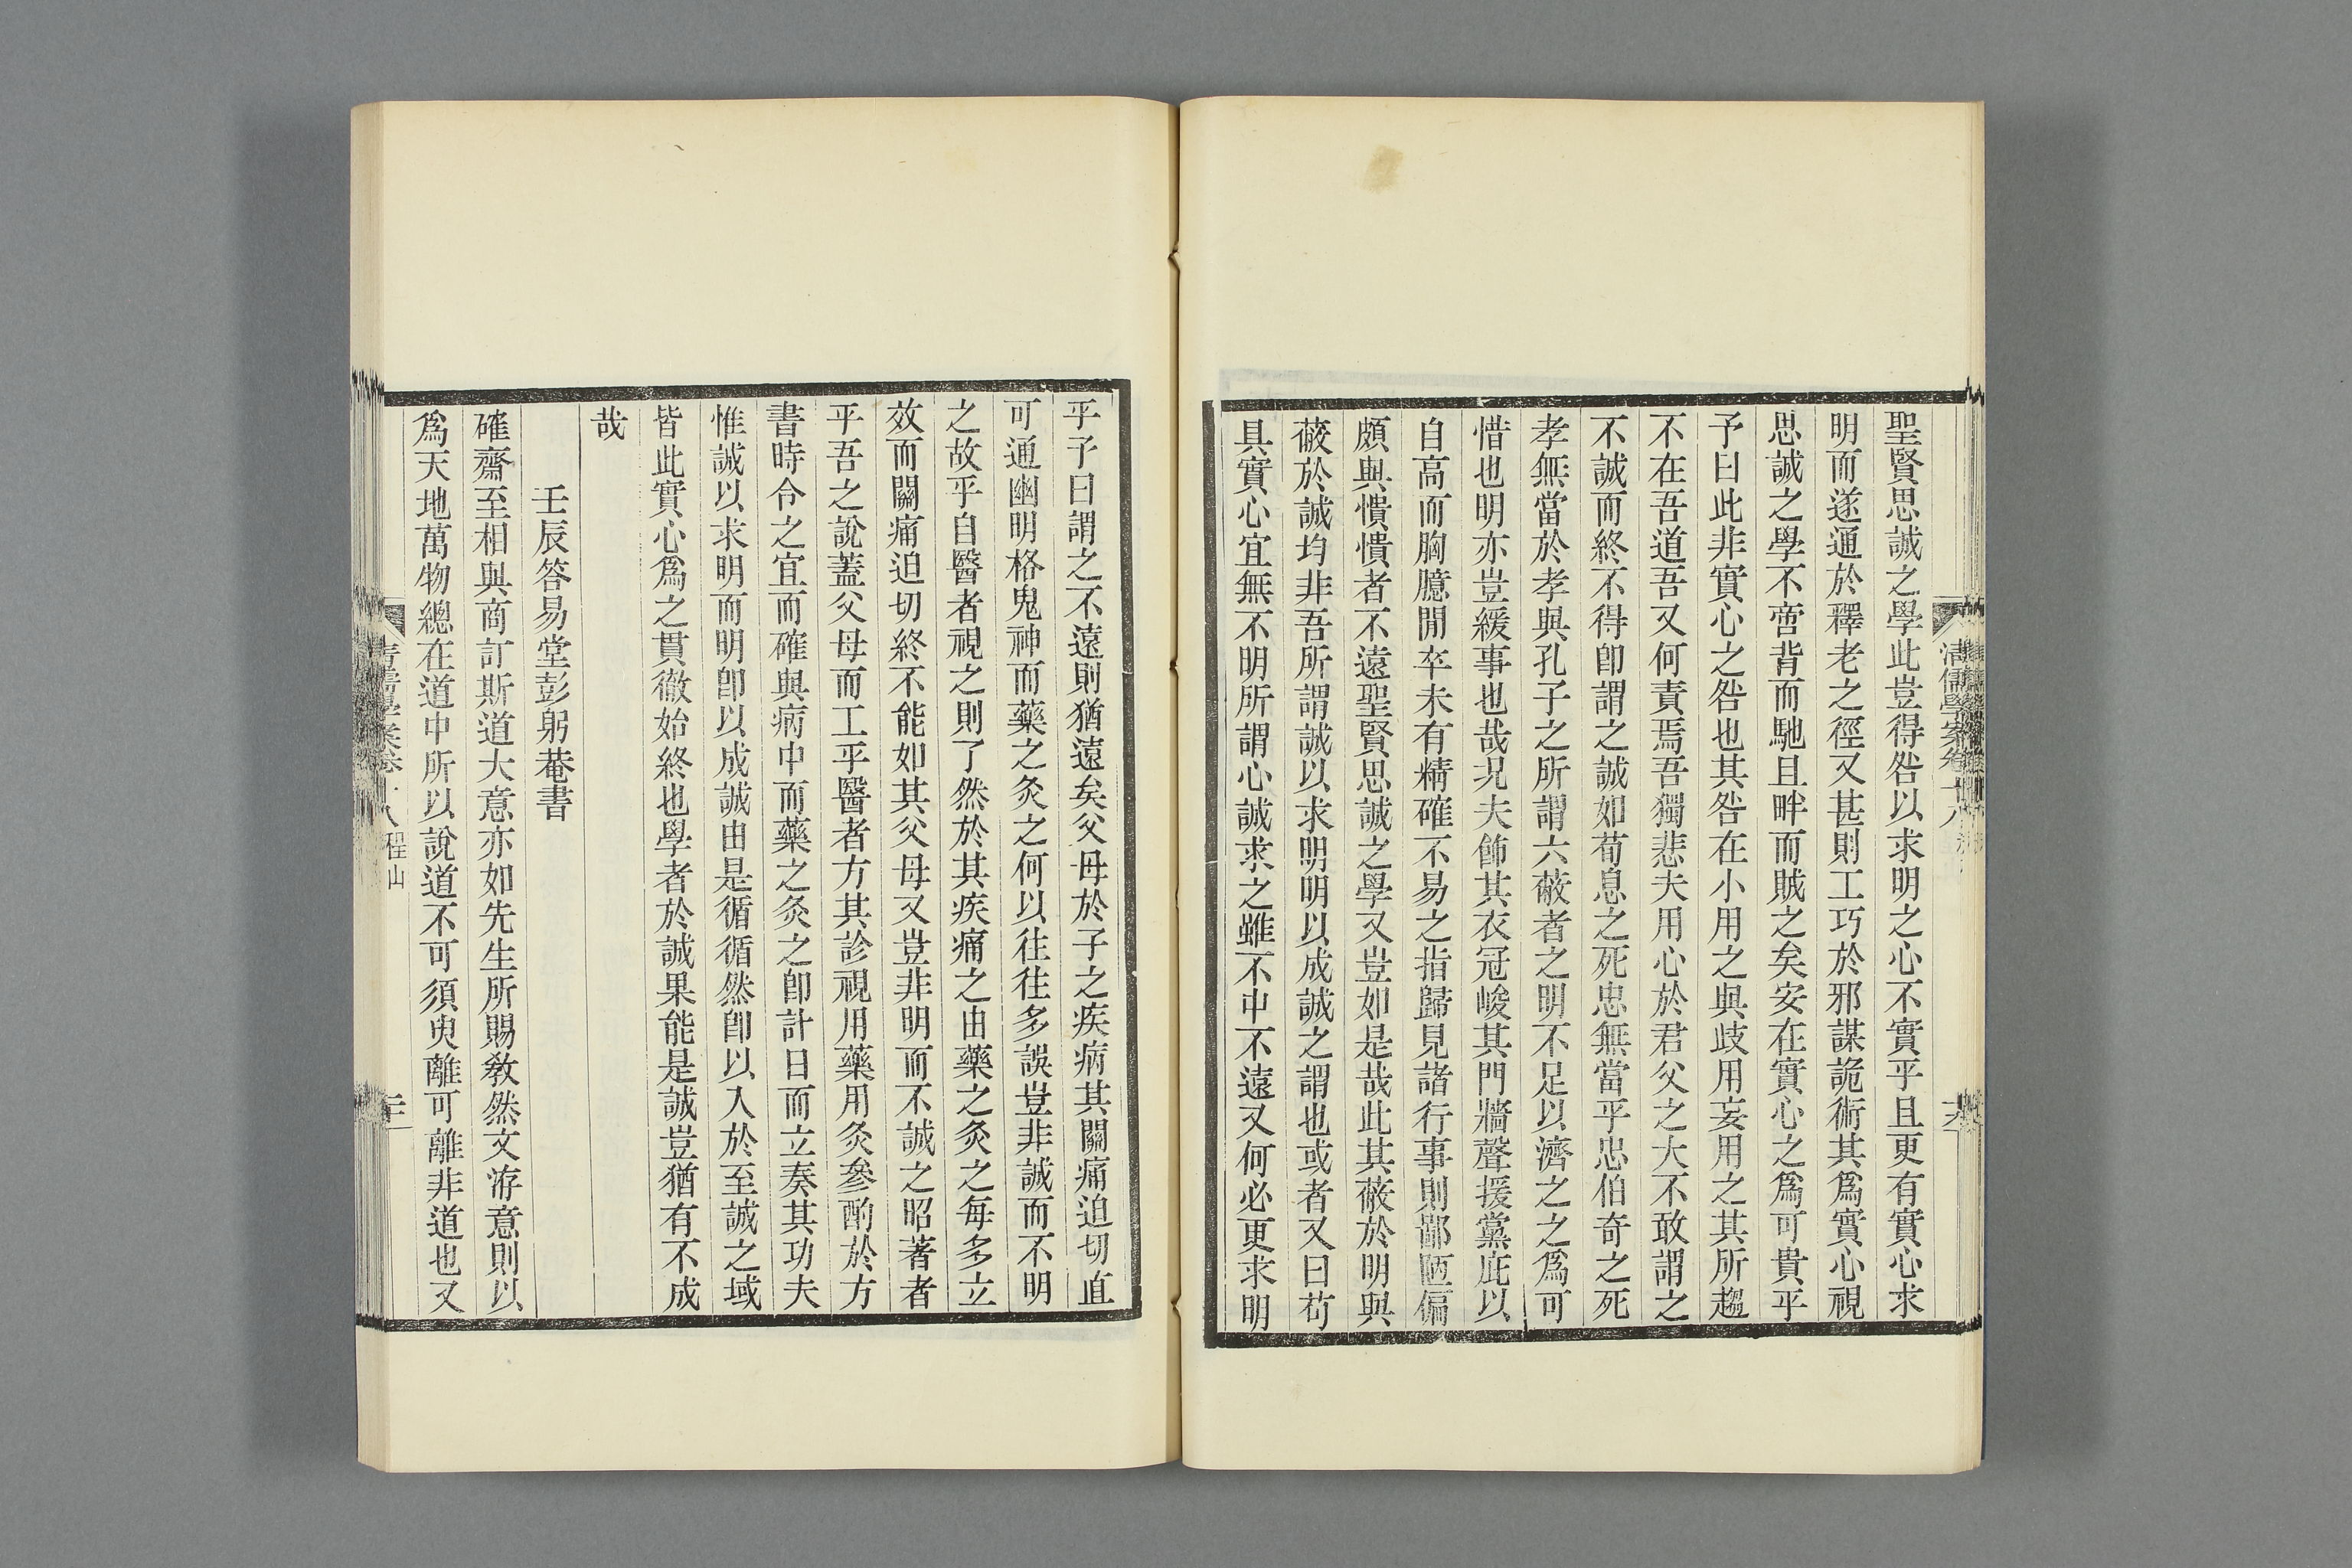 聖賢思誠之學此豈得咎以求明之心不實乎且更有實心求
明而遂通於釋老之徑又甚則工巧於邪謀詭術其爲實心視
思誠之學不啻背而馳且畔而賊之矣安在實心之爲可貴乎
予曰此非實心之咎也其咎在小用之與歧用妄用之其所趨
不在吾道吾又何責焉吾獨悲夫用心於君父之大不敢謂之
不誠而終不得卽謂之誠如荀息之死忠無當乎忠伯奇之死
孝無當於孝與孔子之所謂六蔽者之明不足以濟之之爲可
惜也明亦豈緩事也哉況夫飾其衣冠峻其門牆聲援黨庇以
自高而胸臆閒卒未有精確不易之指歸見諸行事則鄙陋偏
頗與憒憒者不遠聖賢思誠之學又豈如是哉此其蔽於明與
蔽於誠均非吾所謂誠以求明明以成誠之謂也或者又曰苟
具實心宜無不明所謂心誠求之雖不中不遠又何必更求明
乎予曰謂之不遠則猶遠矣父母於子之疾病其關痛迫切直
可通幽明格鬼神而藥之灸之何以往往多誤豈非誠而不明
之故乎自醫者視之則了然於其疾痛之由藥之灸之每多立
效而關痛迫切終不能如其父母又豈非明而不誠之昭著者
乎吾之說蓋父母而工乎醫者方其診視用藥用灸參酌於方
書時令之宜而確與病中而藥之灸之卽計日而立奏其功夫
惟誠以求明而明卽以成誠由是循循然卽以入於至誠之域
皆此實心爲之貫徹始終也學者於誠果能是誠豈猶有不成
哉
壬辰答易堂彭躬菴書
確齋至相與商訂斯道大意亦如先生所賜教然文洊意則以
爲天地萬物總在道中所以說道不可須臾離可離非道也又
清儒學案卷十八
程山